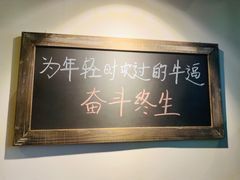 为年轻时吹过的牛逼
奋斗终生